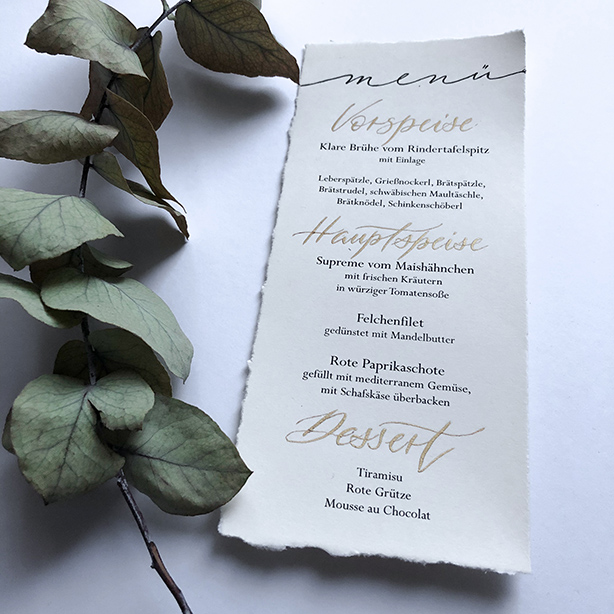 menü
Vorspeise
Klare Brühe vom Rindertafelspitz
mit Einlage
Leberspätzle, Grießnockerl, Brätspätzle,
Brätstrudel, schwäbischen Maultäschle,
Brätknödel, Schinkenschöberl
Hauptspeise
Supreme vom Maishähnchen
mit frischen Kräutern
in würziger Tomatensoße
Felchenfilet
gedünstet mit Mandelbutter
Rote Paprikaschote
gefüllt mit mediterranem Gemüse,
mit Schafskäse überbacken
Dessert
Tiramisu
Rote Grütze
Mousse au Chocolat